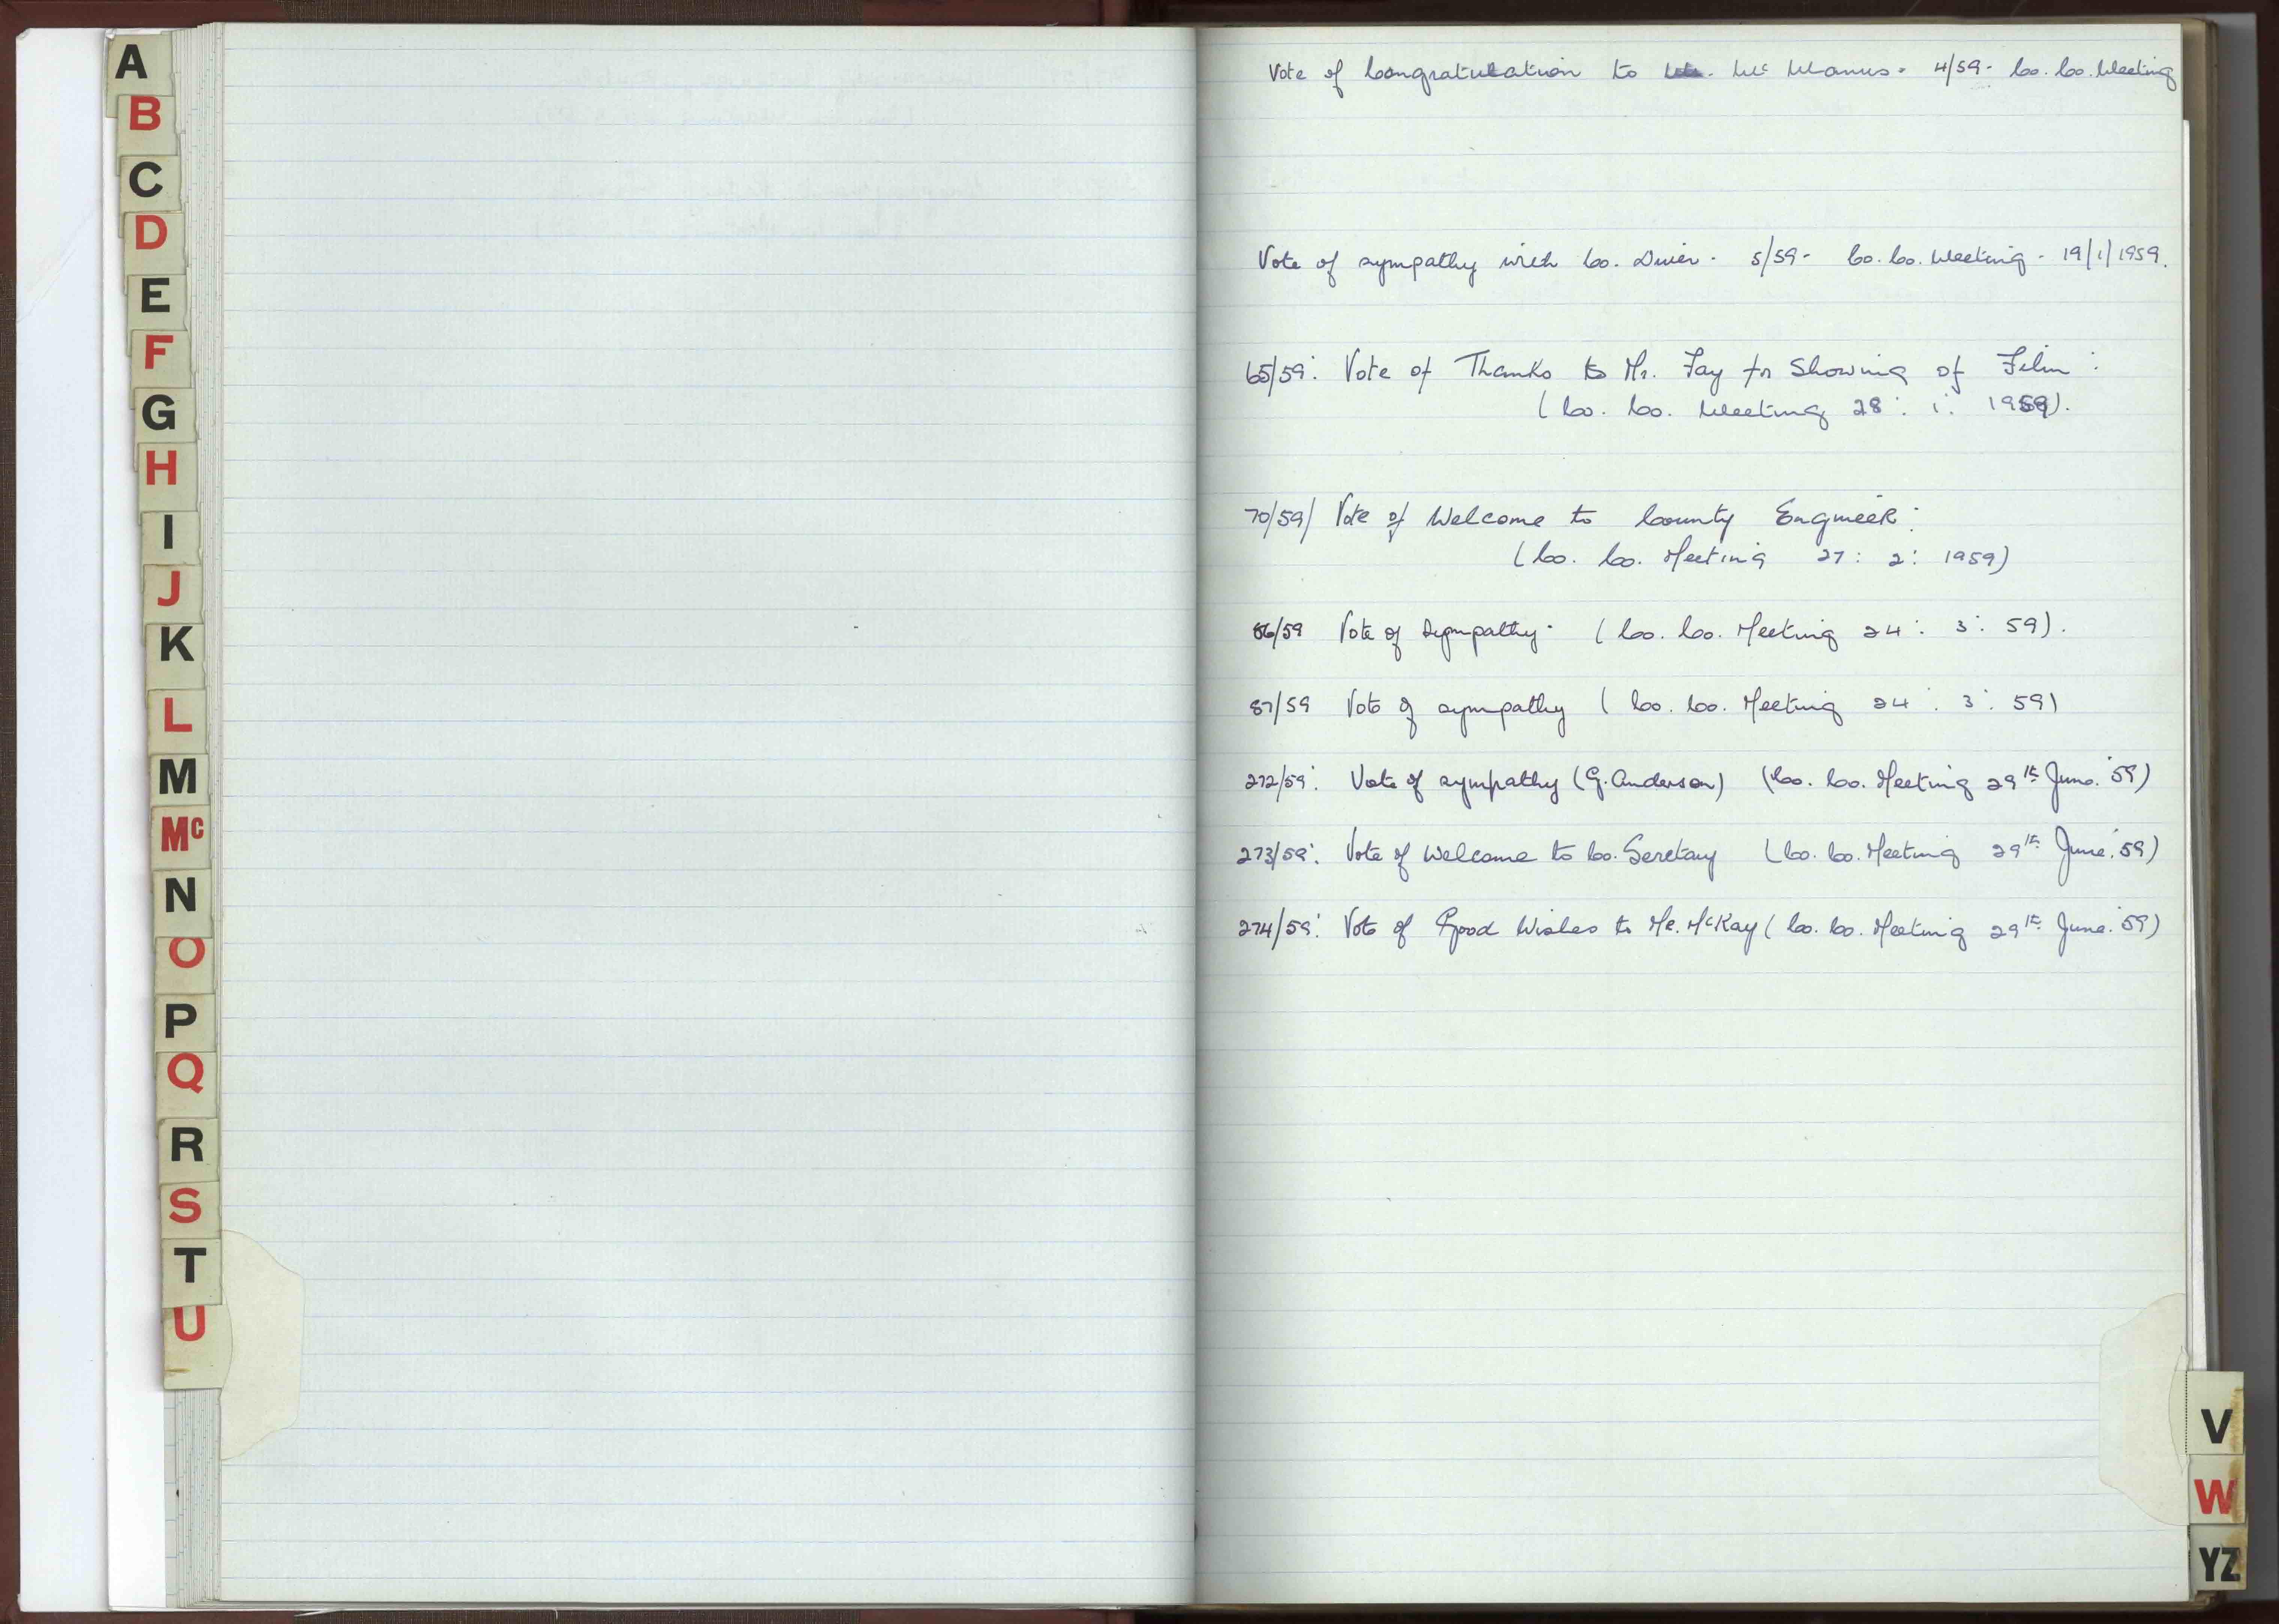 A
B
C
D
E
F
G
H
I
J
K
L
M
Mc
N
O
P
Q
R
S
T
U
Vote of Congratulation to Mr. Mc Manus. 4/59- Co. Co. Meeting
Vote of sympathy with Co. Dwier. 5/59- Co. Co. Meeting - 19/1/1959.
65/59: Vote of Thanks to Mr. Fay for Showing of Film:
(Co. Co. Meeting 28: 1: 1959).
70/59/ Vote of Welcome to County Engineer:
(Co. Co. Meeting 27: 2: 1959)
86/59 Vote of Sympathy. (Co. Co. Meeting 24: 3: 59).
87/59 Vote of sympathy (Co. Co. Meeting 24: 3: 59)
272/59: Vote of sympathy (G. Anderson) (Co. Co. Meeting 29th June. '59)
273/59: Vote of Welcome to Co. Seretary (Co. Co. Meeting 29th June. '59)
274/59: Vote of Good Wishes to Mr. McKay (Co. Co. Meeting 29th June. '59)
V
W
YZ